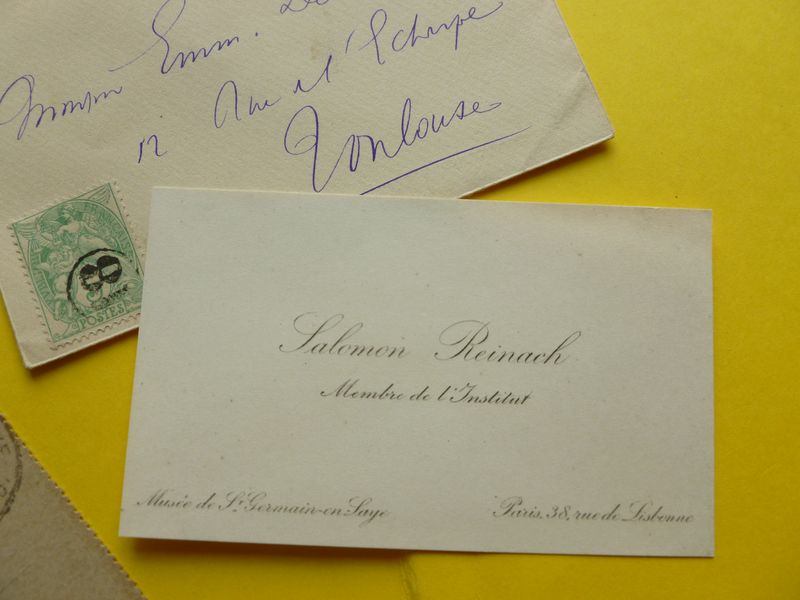 Monsieur Emm. De
12 Rue de l'Echarpe
Toulouse
8
5
POSTES
Salomon Reinach
Membre de l'Institut
Musée de St. Germain-en-Laye
Paris, 38, rue de Lisbonne